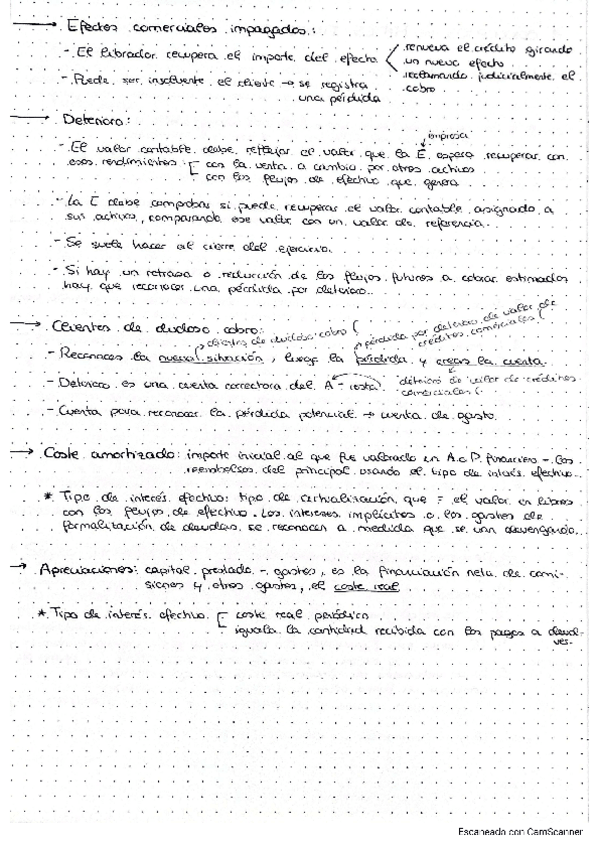 → Efectos comerciales impagados:
- El librador recupera el importe del efecto < renueva el crédito girando
un nuevo efecto
reclamando judicialmente el
cobro
- Puede ser insolvente el cliente → se registra
una pérdida
→ Deterioro:
empresa
- El valor contable debe reflejar el valor que la E espera recuperar con
esos rendimientos: [ con la venta o cambio por otros activos
con los flujos de efectivo que genera
- La E debe comprobar si puede recuperar el valor contable asignado a
sus activos, comparando ese valor con un valor de referencia.
- Se suele hacer al cierre del ejercicio.
- Si hay un retraso o reducción de los flujos futuros a cobrar estimados
hay que reconocer una pérdida por deterioro.
→ Clientes de dudoso cobro:
clientes de dudoso cobro (
pérdida por deterioro de valor de
créditos comerciales (
- Reconoces la nueva situación, luego la pérdida y creas la cuenta.
- Deterioro es una cuenta correctora del A - resta. "deterioro de valor de créditos
comerciales (
- Cuenta para reconocer la pérdida potencial → cuenta de gasto.
→ Coste amortizado: importe inicial al que fue valorado un A o P financiero - los
reembolsos del principal usando el tipo de interés efectivo.
* Tipo de interés efectivo: tipo de actualización que = el valor en libros
con los flujos de efectivo. Los intereses implícitos o los gastos de
formalización de deudas se reconocen a medida que se van devengando.
→ Apreciaciones: capital prestado - gastos, es la financiación neta de comi-
siones y otros gastos, el coste real
* Tipo de interés efectivo [ coste real periódico
iguala la cantidad recibida con los pagos a devol-
ver.
Escaneado con CamScanner